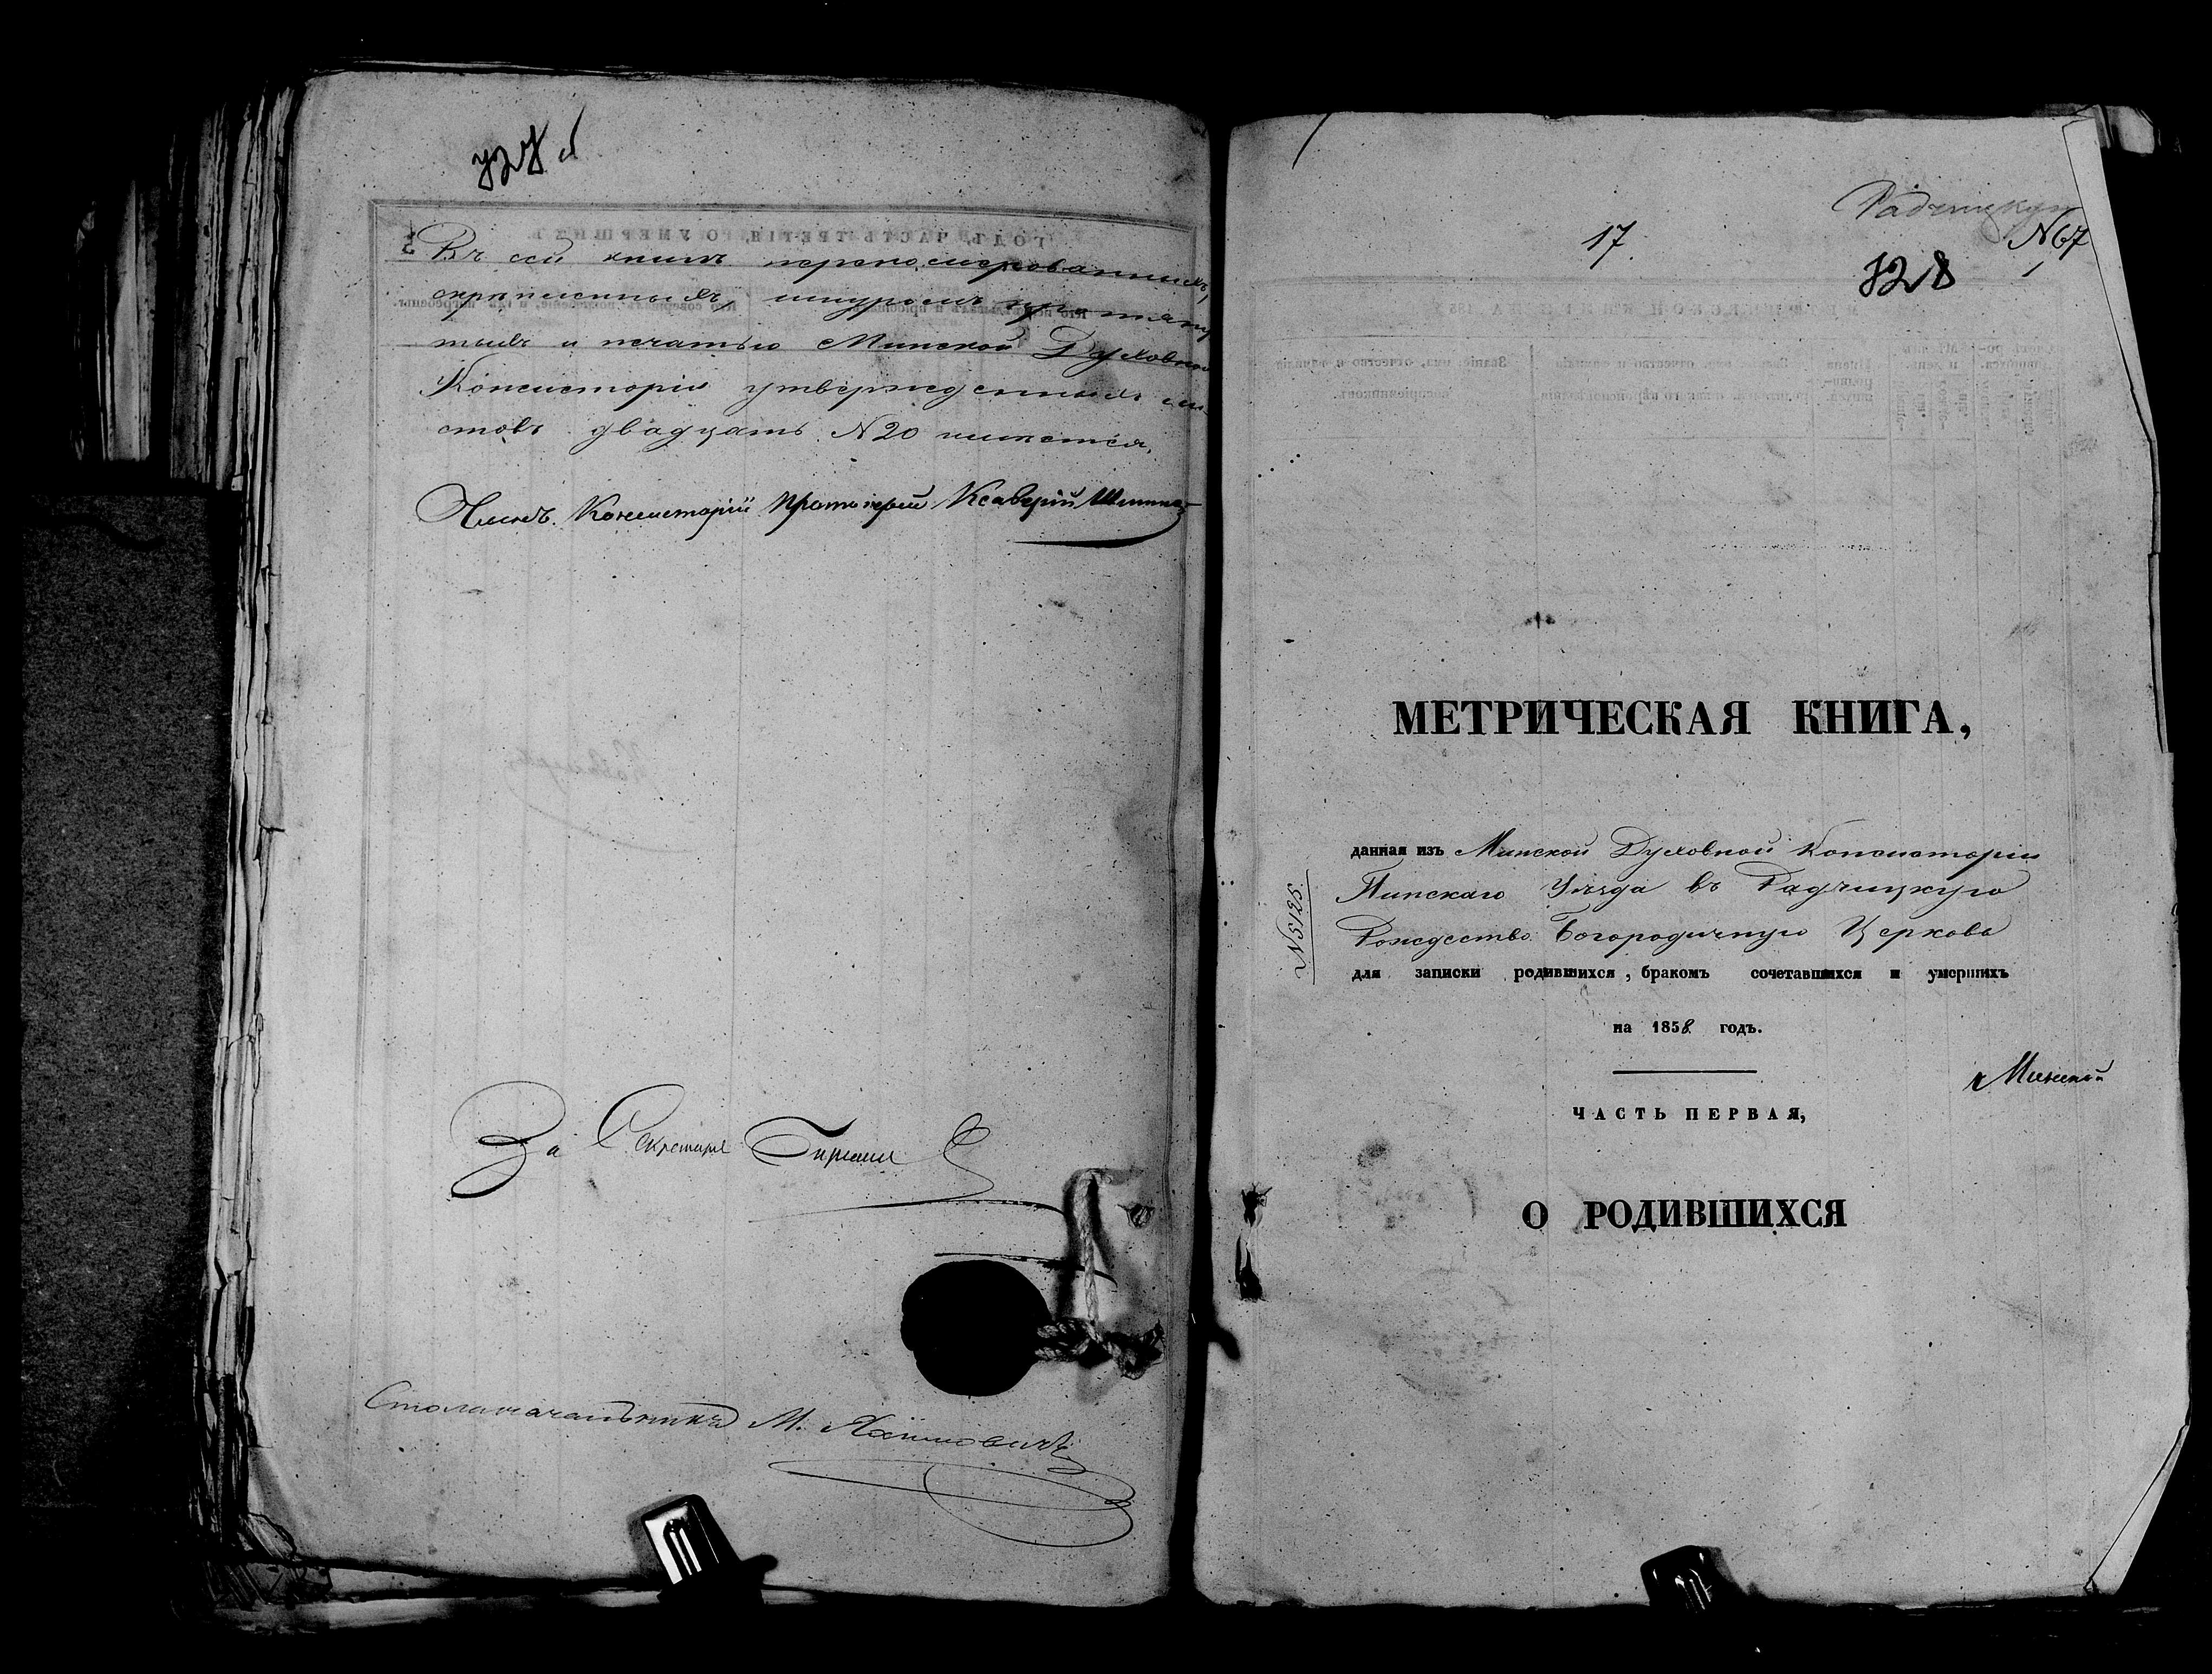 Въ сей книгѣ перенумерованныхъ,
скрѣпленныхъ, шнуромъ протяну
тыхъ и печатью Минской Духовной
Консисторіи утвержденныхъ ли-
стовъ двадцать N20 имѣется.
Членъ Консисторіи Протоіерей Ксаверій
За Секретаря
Столоначальникъ М. Яхимовичъ
17.
Радчицкую
N67
728
МЕТРИЧЕСКАЯ КНИГА,
данная изъ Минской Духовной Консисторіи
Пинскаго Уѣзда въ Радчицкую
Рождество Богородичную Церковь
N5125.
для записки родившихся, бракомъ сочетавшихся и умершихъ
на 1858 годъ.
Минской
ЧАСТЬ ПЕРВАЯ,
О РОДИВШИХСЯ